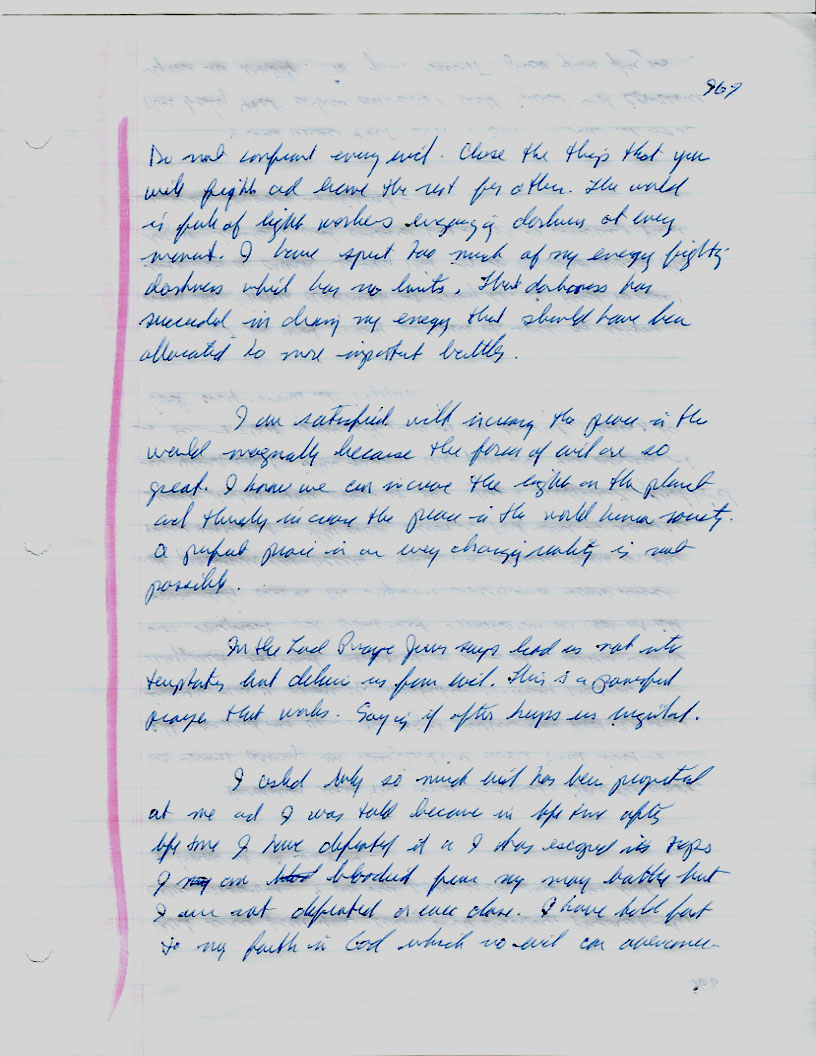 969
Do not confront every evil. Chose the things that you
will fight and leave the rest for others. The world
is full of light workers engaging darkness at every
moment. I have spent too much of my energy fighting
darkness which has no limits. That darkness has
succeeded in draining my energy that should have been
allocated to more important battles.
I am satisfied with increasing the peace in the
world marginally because the forces of evil are so
great. I know we can increase the light on the planet
and thereby increase the peace in the world human society.
A perfect peace in an every changing reality is not
possible.
In the Lord Prayer Jesus says lead us not into
temptation but deliver us from evil. This is a powerful
prayer that works. Saying it often keeps us vigilant.
I asked why so much evil has been projected
at me and I was told because in life time after
life time I have defeated it or I has escaped its
I am bloodied from my many battles but
I am not defeated or even close. I have held fast
to my faith in God which no evil can overcome